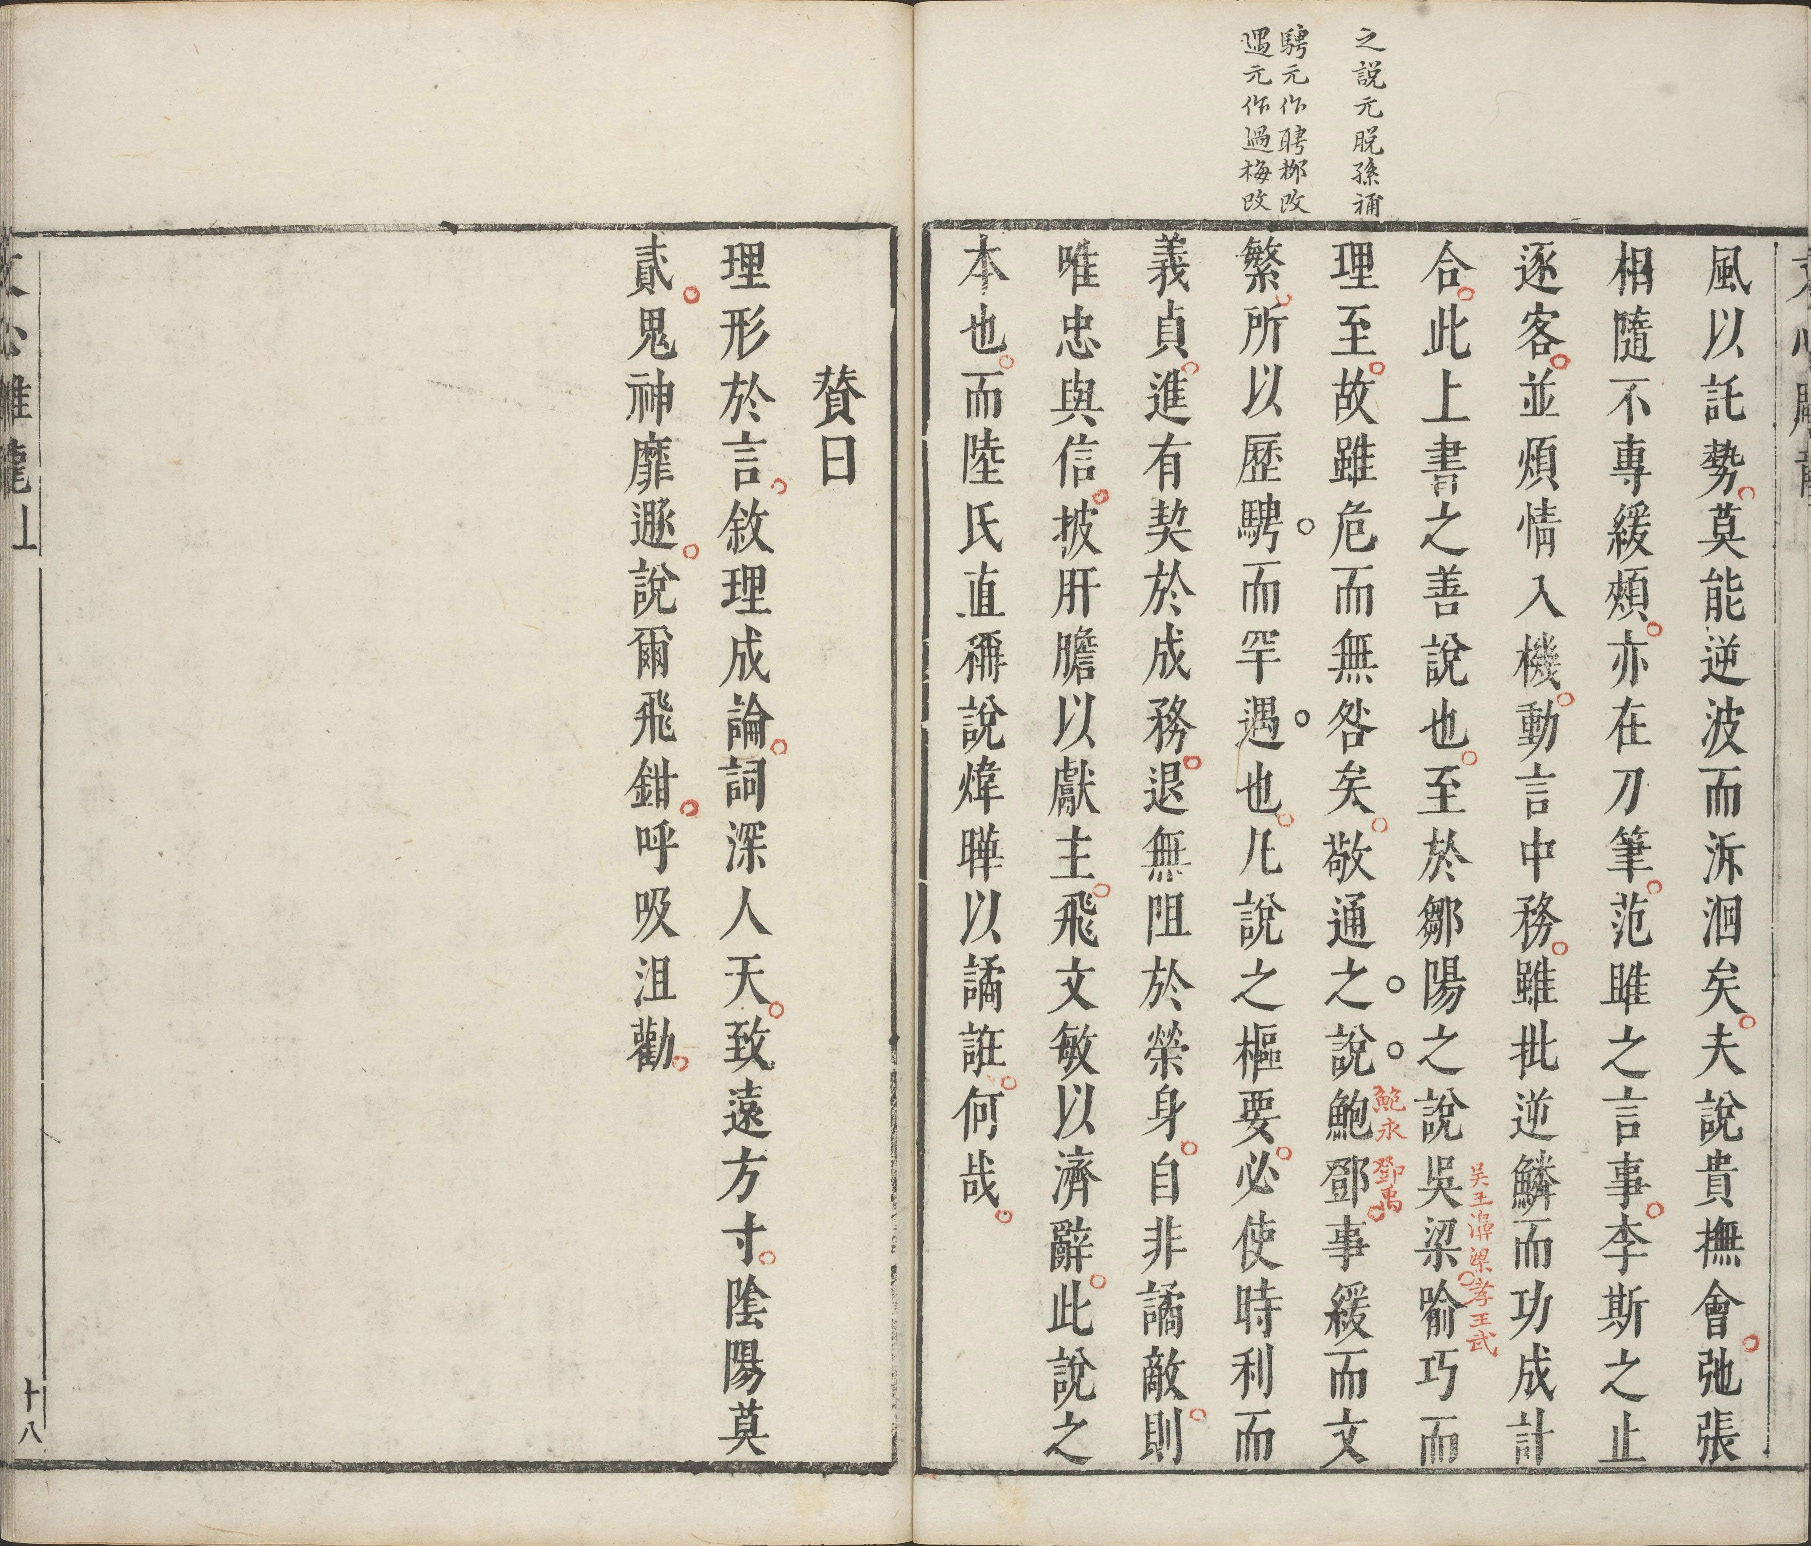 之説元脱孫補
騁元作聘栁改
遇元作過梅改
風以託勢莫能逆波而泝洄矣夫說貴撫會弛張
相隨不專緩頰亦在刀筆范雎之言事李斯之止
逐客並煩情入機動言中務雖批逆鱗而功成計
合此上書之善說也至於鄒陽之說吳梁喻巧而
吴王濞梁孝王武
理至故雖危而無咎矣敬通之說鮑鄧事緩而文
鮑永 鄧禹
繁所以歷騁而罕遇也凡說之樞要必使時利而
義貞進有契於成務退無阻於榮身自非譎敵則
唯忠與信披肝膽以獻主飛文敏以濟辭此說之
本也而陸氏直稱說煒曄以譎誑何哉
贊曰
理形於言敘理成論詞深人天致遠方寸陰陽莫
貳鬼神靡遯說爾飛鉗呼吸沮勸
十八